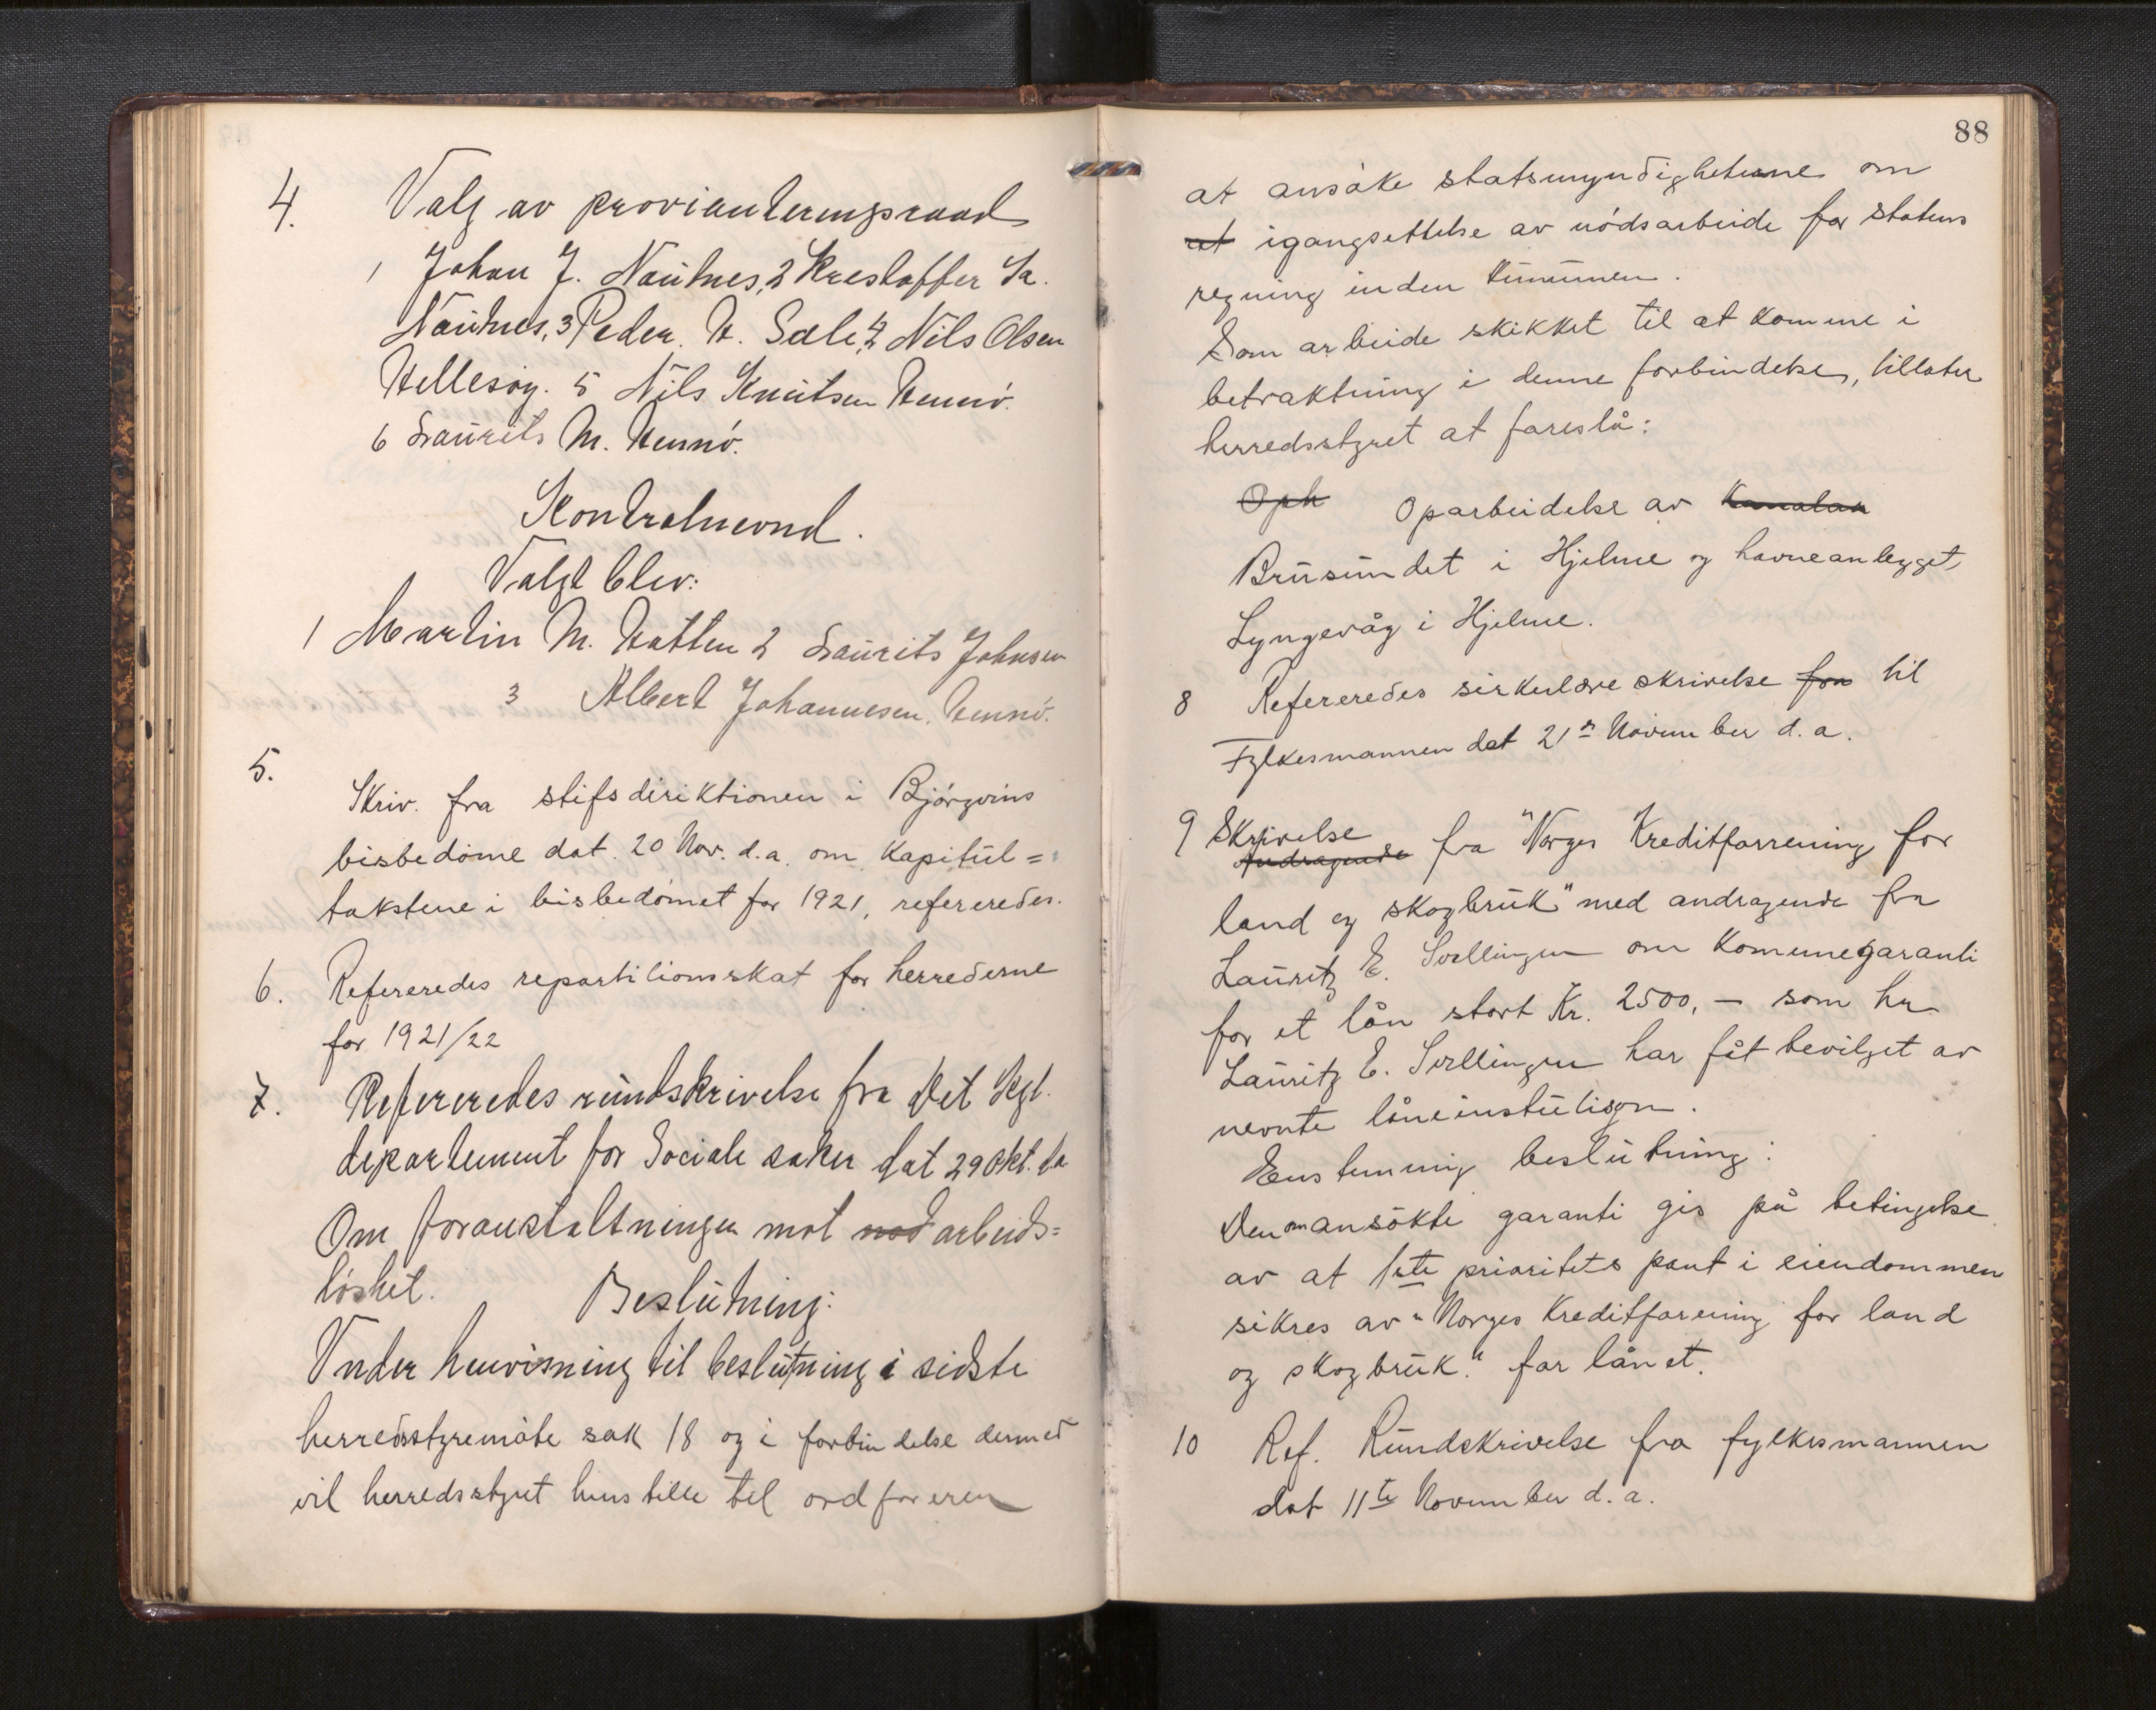 4. Valg av provianteringsraad
1 Johan J. Nautnes, 2 Krestoffer Sa.
Nautnes, 3 Peder. H. Sæle, 4 Nils Olsen
Hellesøy. 5 Nils Knutsen Hennö.
6 Laurits M. Hennö.
Kontrolnevnd.
Valgt blev:
1 Martin M. Hatten 2 Laurits Johnsen
3 Albert Johannesen. Hennö.
5.
Skriv. fra stifsdiriktionen i Björgvins
bisbedöme dat. 20 Nov. d.a. om Kapitul=
takstene i bisbedömet for 1921, refereredes.
6. Refereredes repartitionsskat for herrederne
for 1921/22
7. Refereredes rundskrivelse fra Det Kgl.
departement for Sociale saker dat 29 Okt. da
Om foranstaltninger mot nød arbeids=
löshet. Beslutning:
Under henvisning til beslutning i sidste
herredsstyremöte sak 18 og i forbindelse dermed
vil herredsstyret henstille til ordföreren
88
at ansöke statsmyndighetene om
at igangsettelse av nödsarbeide for statens
regning inden kummunen.
Som arbeide skikket til at komme i
betraktning i denne forbindelse, tillater
herredsstyret at foreslå:
Oph Oparbeidelse av Kanalan
Brusundet i Hjelme og havneanlegget
Lyngevåg i Hjelme.
8 Refereredes sirkulære skrivelse fra til
Fylkesmannen dat 21 November d.a.
9 Skrivelse
Andragende fra "Norges Kreditforrening for
land og skogbruk" med andragende fra
Lauritz E. Soellingen om Komunegaranti
for et lån stort Kr. 2500,- som hr
Lauritz E. Soellingen har fåt bevilget av
nevnte låneinstution.
Enstemmig beslutning:
Den om ansökte garanti gis på betingelse
av at 1ste prioritets pant i eiendommen
sikres av "Norges Kreditforening for land
og skogbruk." for lånet.
10 Ref. Rundskrivelse fra fylkesmannen
dat 11te November d.a.